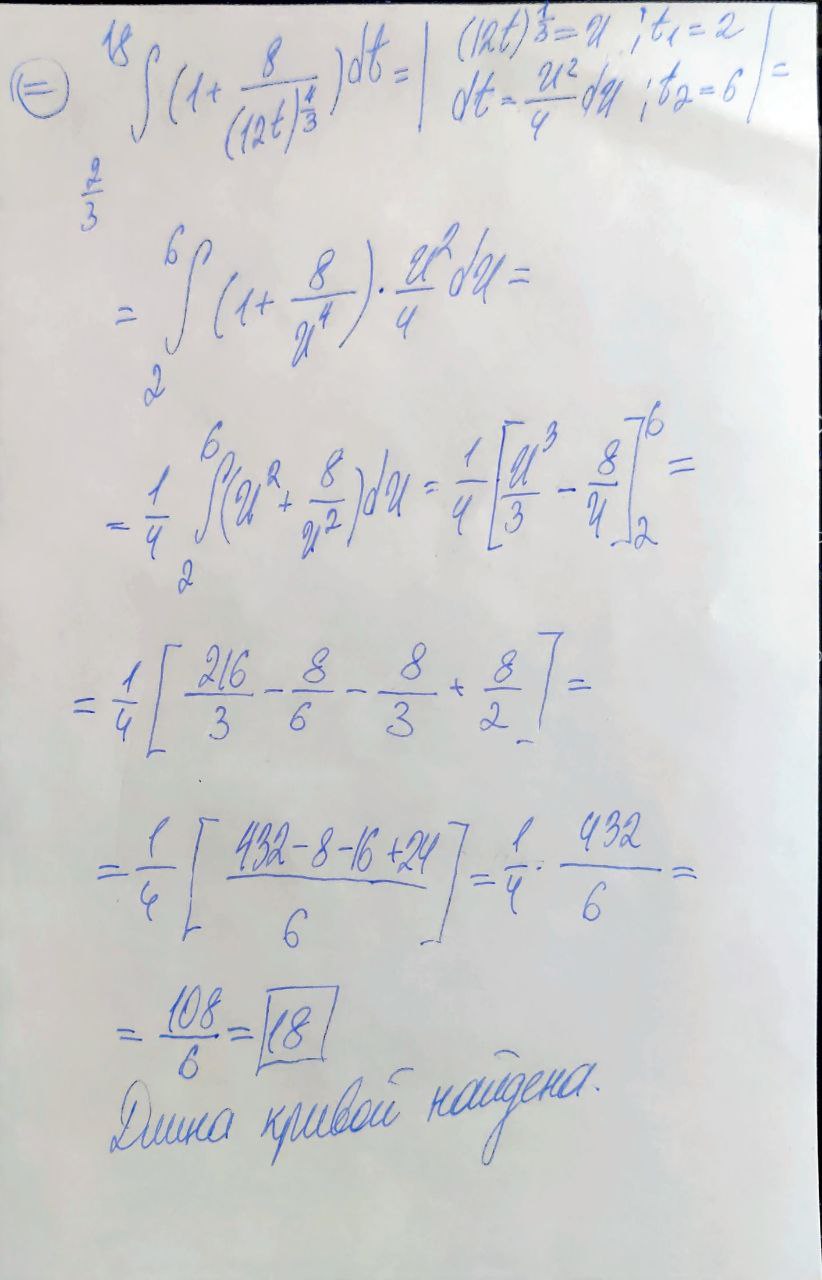 (=) ∫_{2/3}^{18} (1 + 8/(12t)^{4/3}) dt = | (12t)^{1/3} = u ; t₁ = 2
dt = u²/4 du ; t₂ = 6 | =
= ∫_2^6 (1 + 8/u⁴) · u²/4 du =
= 1/4 ∫_2^6 (u² + 8/u²) du = 1/4 [u³/3 - 8/u]_2^6 =
= 1/4 [216/3 - 8/6 - 8/3 + 8/2] =
= 1/4 [(432 - 8 - 16 + 24)/6] = 1/4 · 432/6 =
= 108/6 = 18
Длина кривой найдена.